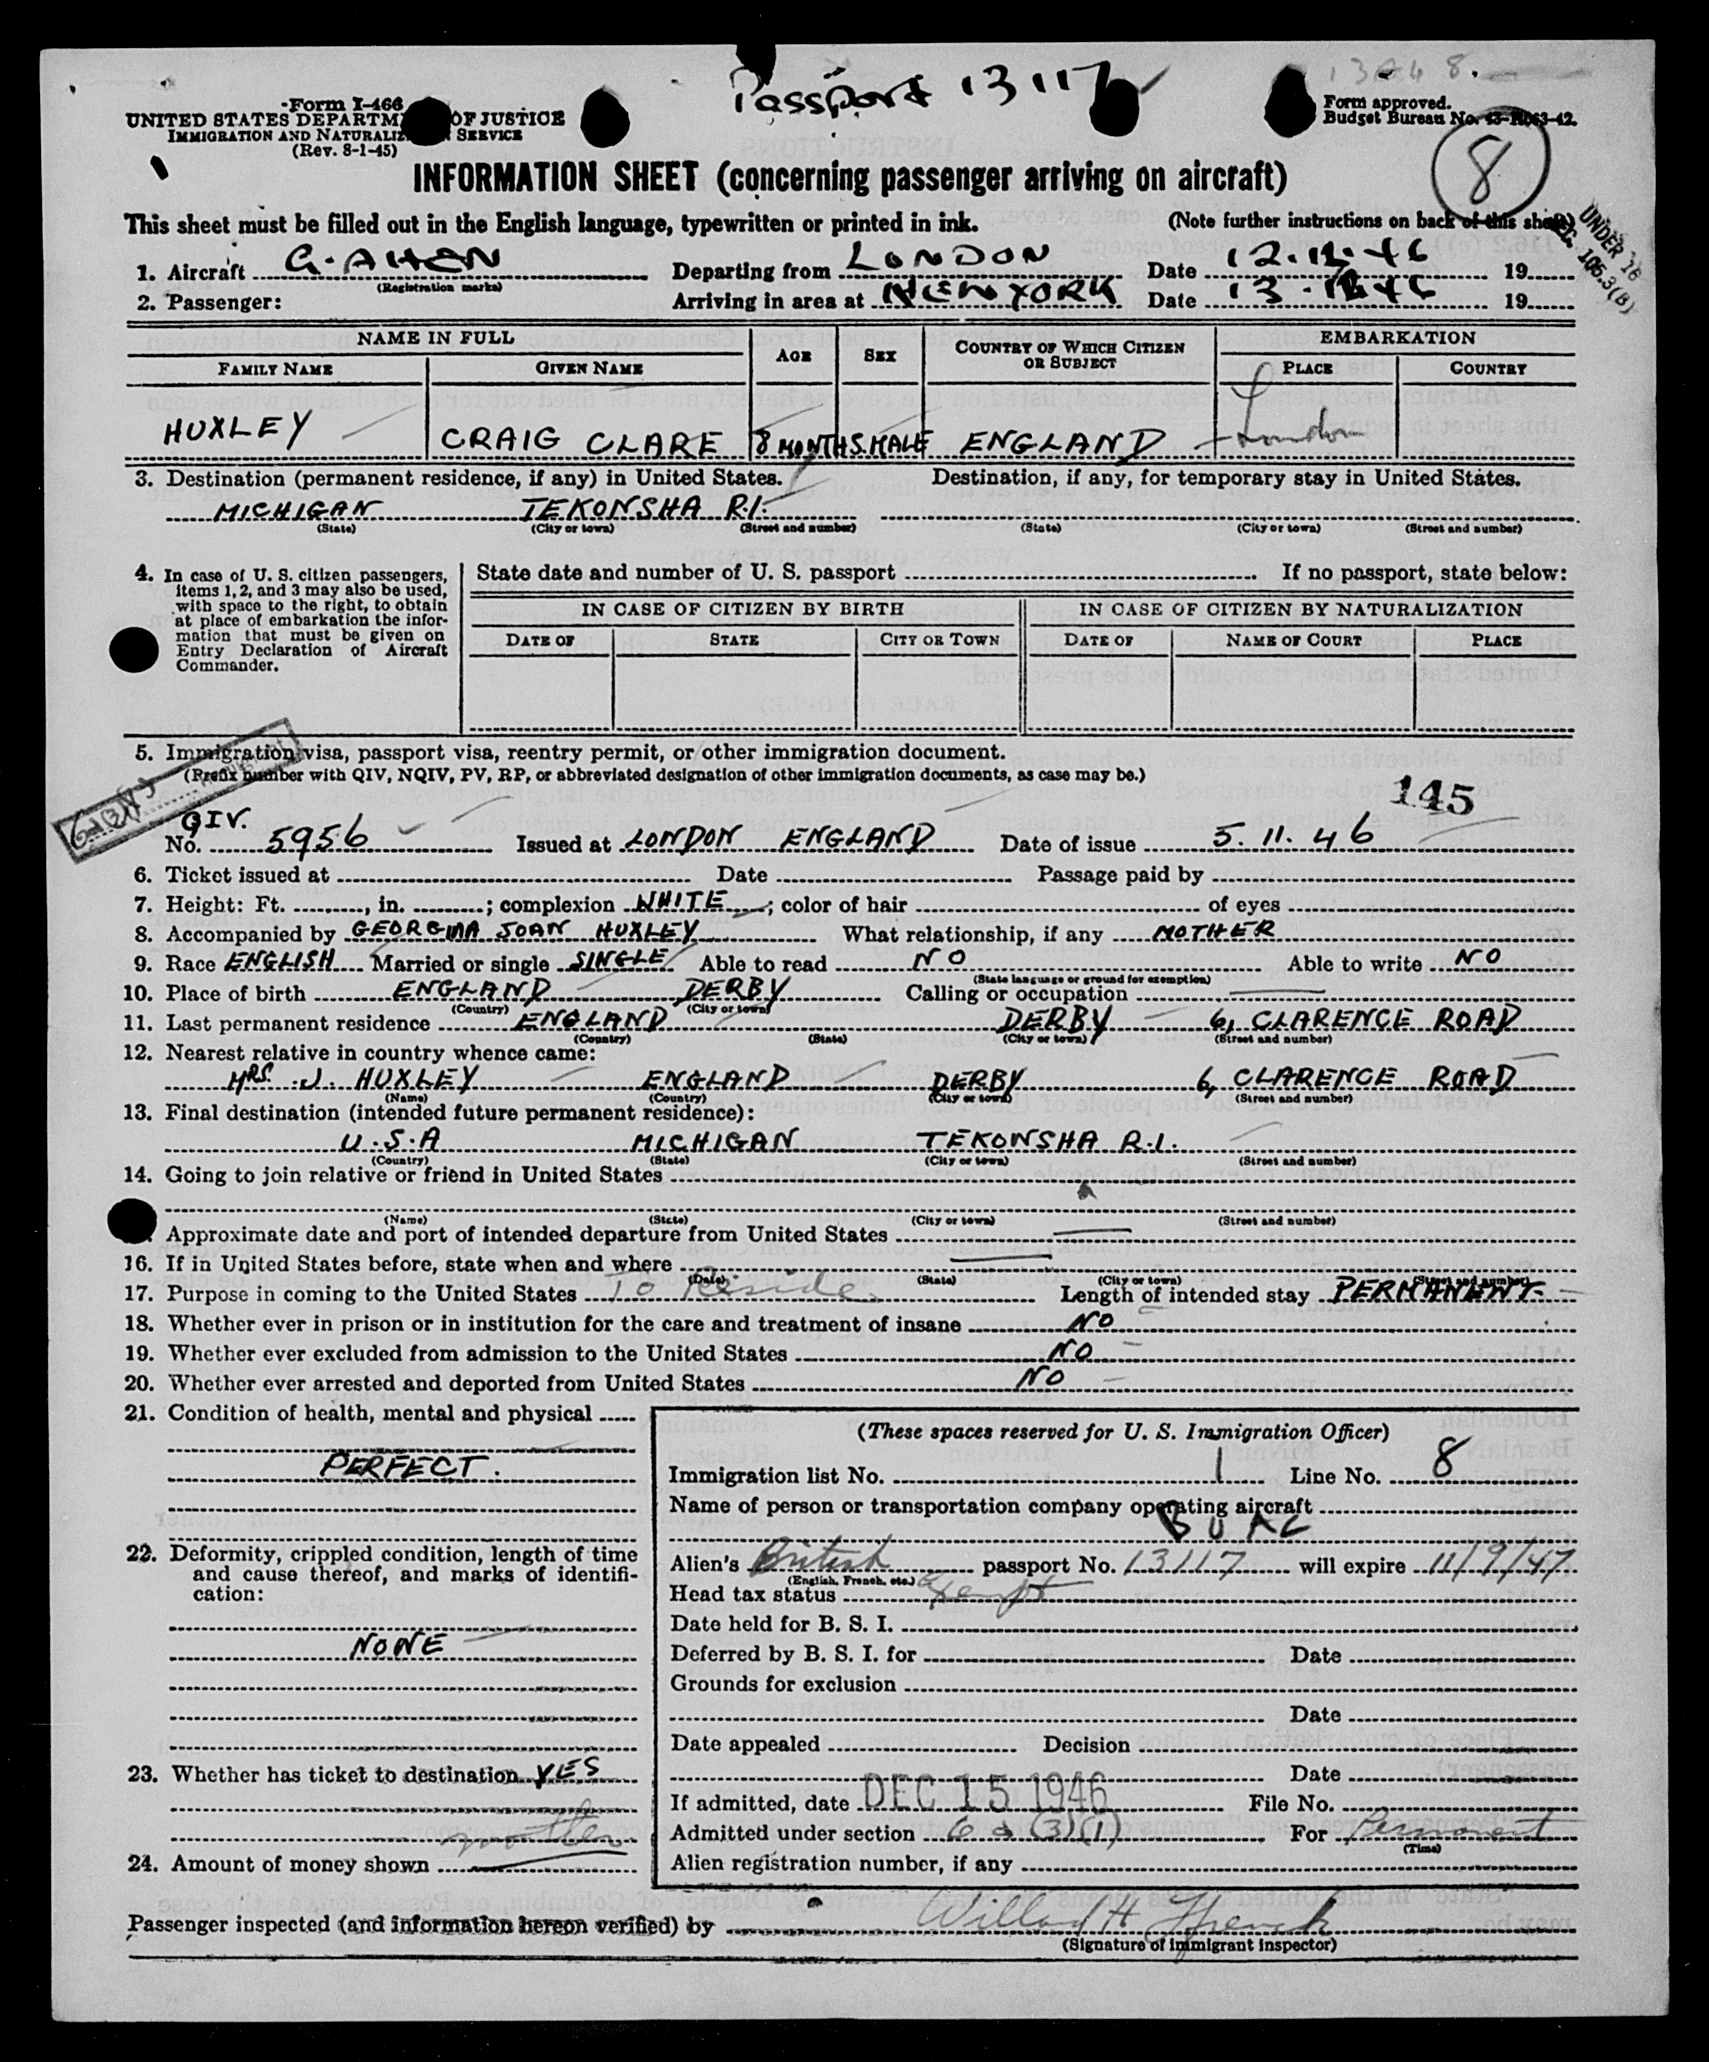 Passport 13117
Form I-466
UNITED STATES DEPARTM OF JUSTICE
IMMIGRATION AND NATURALIZ SERVICE
(Rev. 8-1-45)
Form approved.
Budget Bureau No.
8
INFORMATION SHEET (concerning passenger arriving on aircraft)
This sheet must be filled out in the English language, typewritten or printed in ink. (Note further instructions on back of this sheet)
UNDER 16
105.3(B)
1. Aircraft G. AHEN Departing from LONDON Date 12.12.46 19
(Registration marks)
2. Passenger: Arriving in area at NEW YORK Date 13.12.46 19
NAME IN FULL AGE SEX COUNTRY OF WHICH CITIZEN OR SUBJECT EMBARKATION
FAMILY NAME GIVEN NAME PLACE COUNTRY
HUXLEY CRAIG CLARE 8 MONTHS. MALE ENGLAND London
3. Destination (permanent residence, if any) in United States. Destination, if any, for temporary stay in United States.
MICHIGAN TEKONSHA R.I.
(State) (City or town) (Street and number) (State) (City or town) (Street and number)
4. In case of U. S. citizen passengers,
items 1, 2, and 3 may also be used,
with space to the right, to obtain
at place of embarkation the infor-
mation that must be given on
Entry Declaration of Aircraft
Commander.
State date and number of U. S. passport If no passport, state below:
IN CASE OF CITIZEN BY BIRTH IN CASE OF CITIZEN BY NATURALIZATION
DATE OF STATE CITY OR TOWN DATE OF NAME OF COURT PLACE
5. Immigration visa, passport visa, reentry permit, or other immigration document.
(Prefix number with QIV, NQIV, PV, RP, or abbreviated designation of other immigration documents, as case may be.)
145
QIV.
No. 5956 Issued at LONDON ENGLAND Date of issue 5.11.46
6. Ticket issued at Date Passage paid by
7. Height: Ft. , in. ; complexion WHITE ; color of hair of eyes
8. Accompanied by GEORGINA JOAN HUXLEY What relationship, if any MOTHER
9. Race ENGLISH Married or single SINGLE Able to read NO Able to write NO
(State language or ground for exemption)
10. Place of birth ENGLAND DERBY Calling or occupation
(Country) (City or town)
11. Last permanent residence ENGLAND DERBY 6, CLARENCE ROAD
(Country) (State) (City or town) (Street and number)
12. Nearest relative in country whence came:
MRS. J. HUXLEY ENGLAND DERBY 6, CLARENCE ROAD
(Name) (Country) (City or town) (Street and number)
13. Final destination (intended future permanent residence):
U.S.A MICHIGAN TEKONSHA R.I.
(Country) (State) (City or town) (Street and number)
14. Going to join relative or friend in United States
(Name) (State) (City or town) (Street and number)
Approximate date and port of intended departure from United States
16. If in United States before, state when and where
(Date) (State) (City or town) (Street and number)
17. Purpose in coming to the United States To Reside. Length of intended stay PERMANENT.
18. Whether ever in prison or in institution for the care and treatment of insane NO
19. Whether ever excluded from admission to the United States NO
20. Whether ever arrested and deported from United States NO
21. Condition of health, mental and physical
PERFECT.
22. Deformity, crippled condition, length of time
and cause thereof, and marks of identifi-
cation:
NONE
23. Whether has ticket to destination YES
mother
24. Amount of money shown
(These spaces reserved for U. S. Immigration Officer)
Immigration list No. 1 Line No. 8
Name of person or transportation company operating aircraft
Alien's British passport No. 13117 will expire 11/9/47
(English, French, etc.)
Head tax status Exempt
Date held for B. S. I.
Deferred by B. S. I. for Date
Grounds for exclusion
Date
Date appealed Decision
Date
If admitted, date DEC 15 1946 File No.
Admitted under section 6 a (3)(1) For Permanent
(Time)
Alien registration number, if any
Passenger inspected (and information hereon verified) by Willard H
(Signature of immigrant inspector)